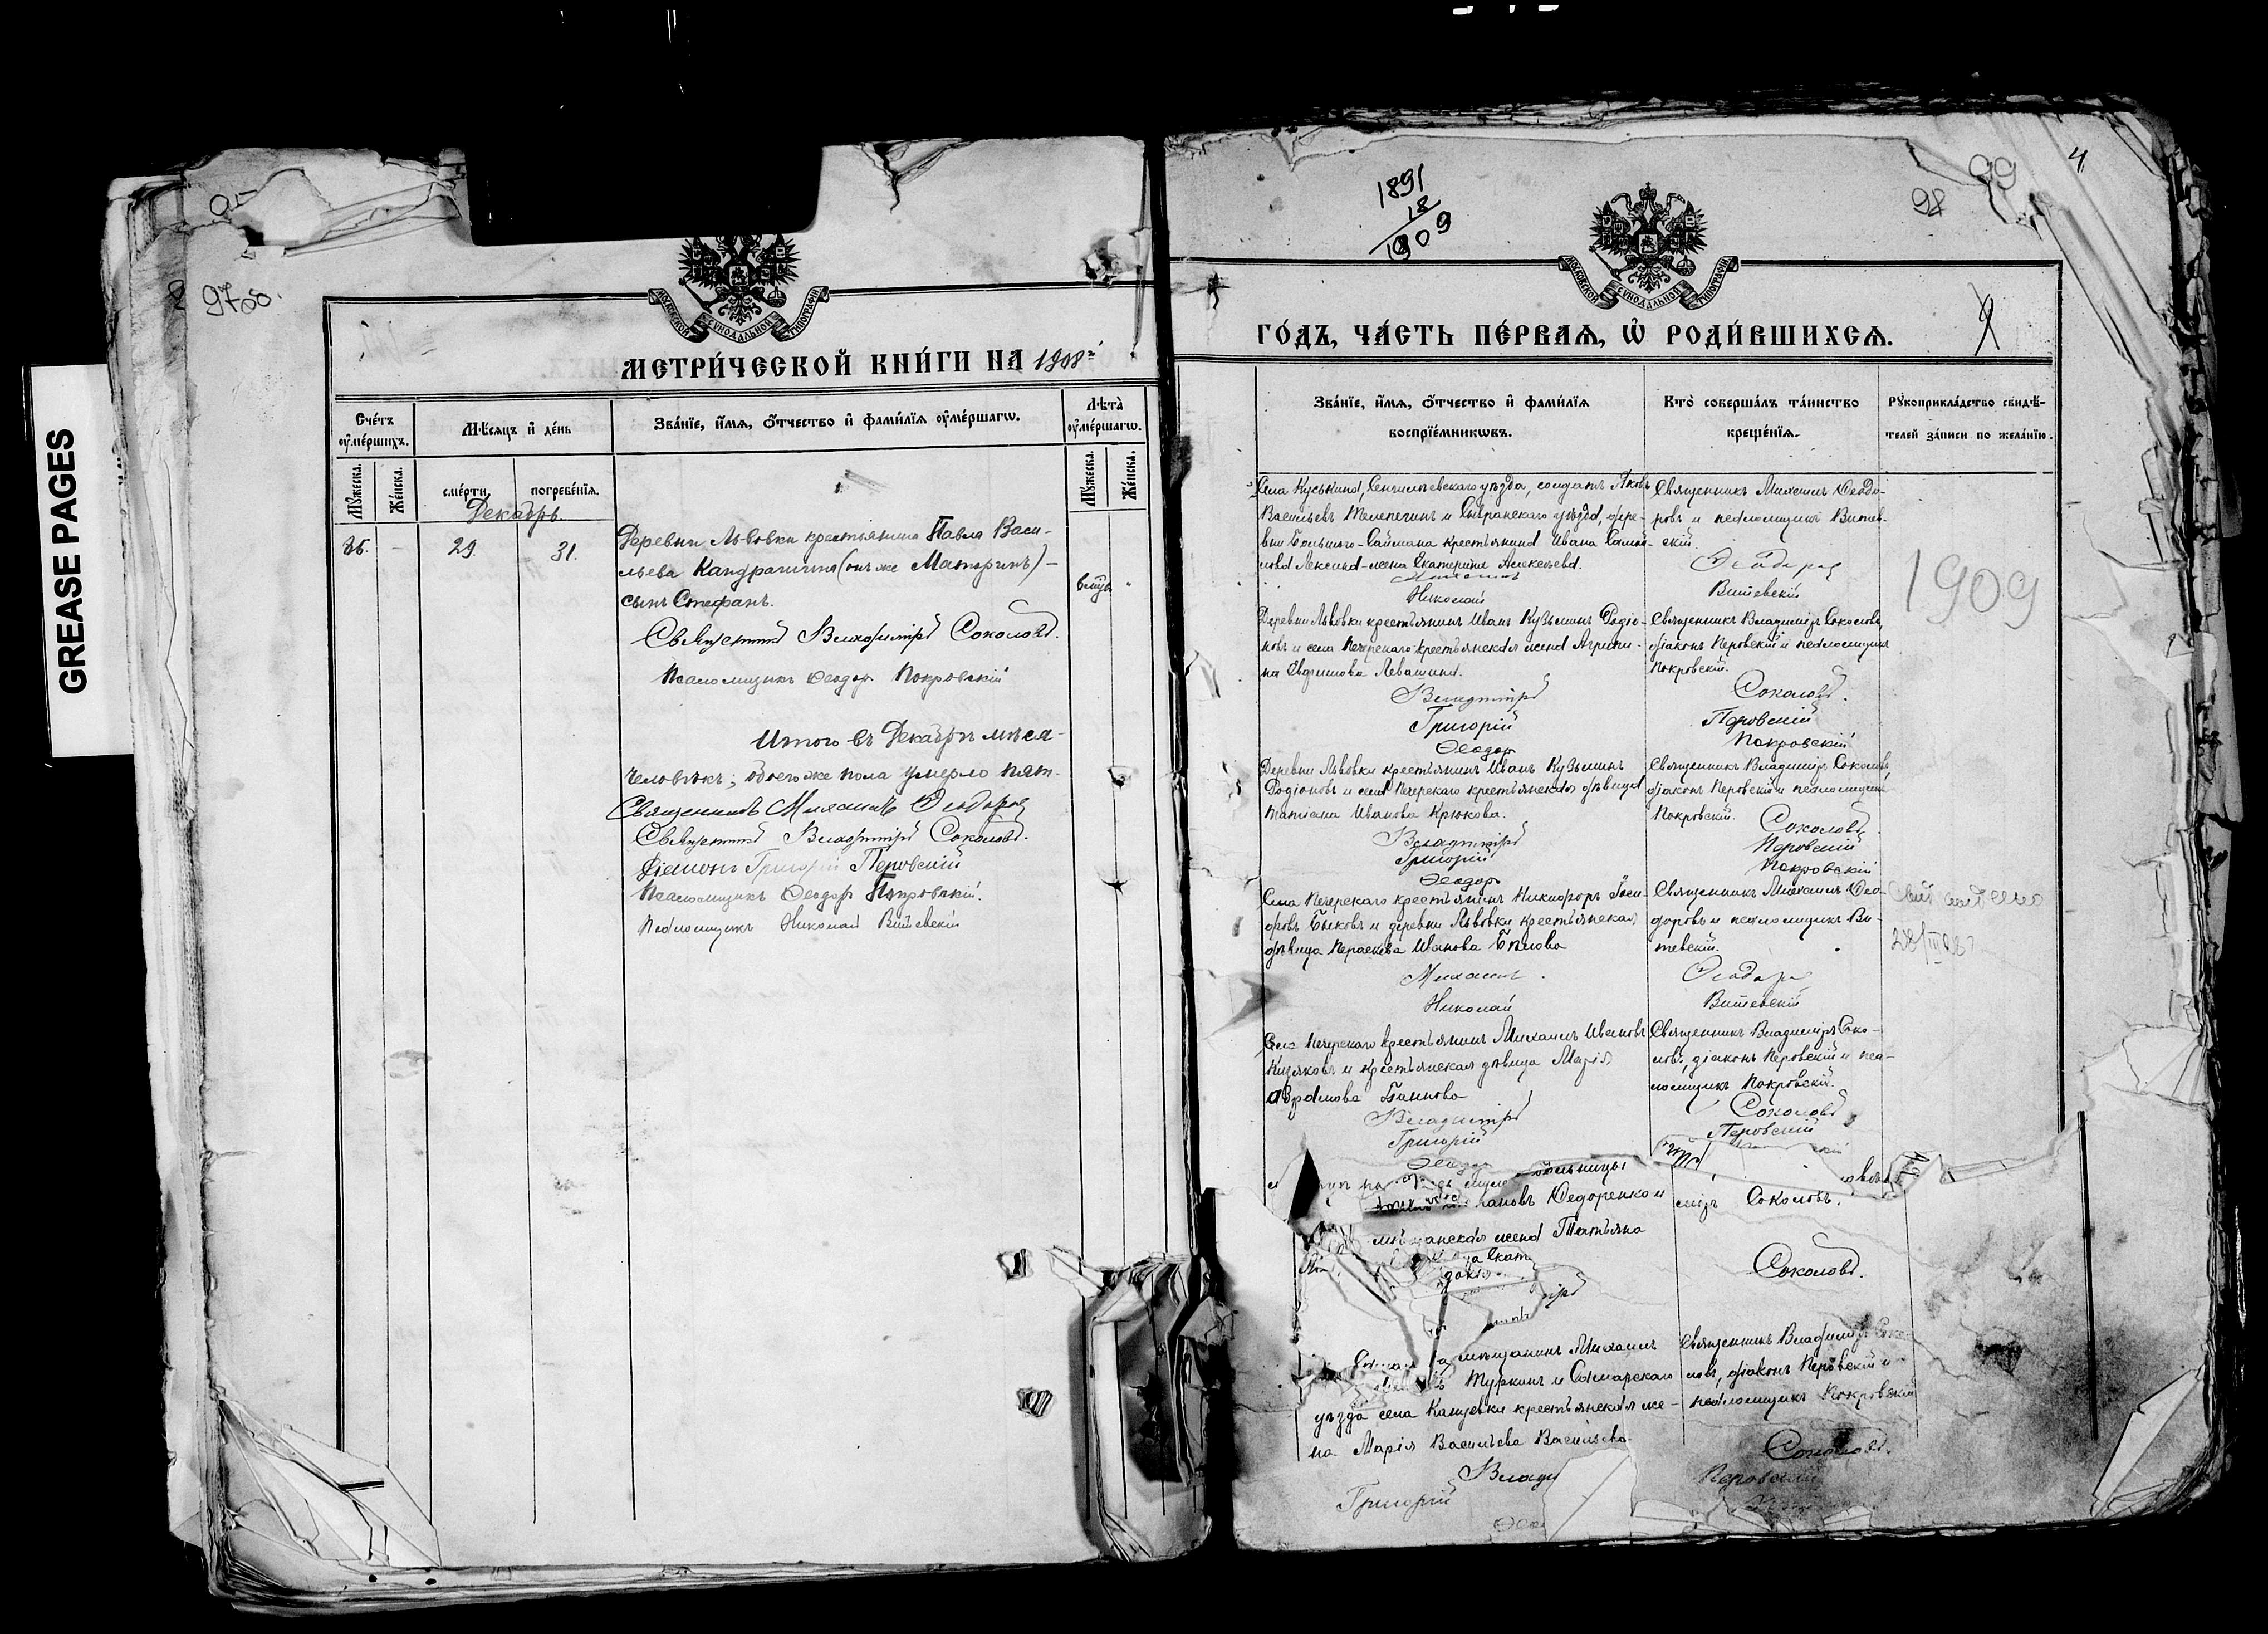 GREASE PAGES
97об.
МОСКОВСКОЙ СУНОДАЛЬНОЙ ТИПОГРАФІИ
МЕТРИ́ЧЕСКОЙ КНИ́ГИ НА 1908й
Сче́тъ ᲂу҆ме́ршихъ.
Мѣ́сяцъ и҆ де́нь
Зва́нїе, и҆́мѧ, ѻ҆́тчество и҆ фами́лїѧ ᲂу҆ме́ршагѡ.
Лѣ̀та ᲂу҆ме́ршагѡ.
Мꙋ́жеска.
Же́нска.
сме́рти
погребе́нїѧ.
Мꙋ́жеска.
Же́нска.
Декабрь.
86. – 29. 31.
Деревни Львовки крестьянина Павла Васи-
льева Кандрашина (онъ же Маторинъ) –
сынъ Стефанъ.
Священникъ Владиміръ Соколовъ.
Псаломщикъ Ѳеодоръ Покровскій
Итого въ Декабрѣ мѣся-
человѣкъ; обоего же пола умерло пят-
Священникъ Михаилъ Ѳеодоровъ
Священникъ Владиміръ Соколовъ.
Діаконъ Григорій Перовскій
Псаломщикъ Ѳеодоръ Покровскій.
Псаломщикъ Николай Витевскій
1891
18
1909
98
99
4
МОСКОВСКОЙ СУНОДАЛЬНОЙ ТИПОГРАФІИ
ГО́ДЪ, ЧА́СТЬ ПЕ́РВАѦ, Ѡ҆ РОДИ́ВШИХСѦ.
Зва́нїе, и҆́мѧ, ѻ҆́тчество и҆ фами́лїѧ
воспрїе́мникѡвъ.
Кто̀ соверша́лъ та́инство
креще́нїѧ.
Рꙋкоприкла́дство свидѣ́-
телей за́писи по жела́нїю.
Села Куськина, Сенгилеевскаго уѣзда, солдатъ Яковъ
Васильевъ Телепегинъ и Сызранскаго уѣзда, дере-
вни Большого-Саймана крестьянина Ивана Самой-
лова Лексина-жена Екатерина Алексѣева.
Михаилъ
Николай
Священникъ Михаилъ Ѳеодо-
ровъ и псаломщикъ Витев-
скій.
Ѳеодоровъ
Витевскій
1909
Деревни Львовки крестьянинъ Иванъ Кузьминъ Родіо-
новъ и села Печерскаго крестьянская жена Агрипи-
на Евдокимова Левашина.
Владиміръ
Григорій
Ѳеодоръ
Священникъ Владиміръ Соколовъ,
діаконъ Перовскій и псаломщикъ
Покровскій.
Соколовъ.
Перовскій
Покровскій
Деревни Львовки крестьянинъ Иванъ Кузьминъ
Родіоновъ и села Печерскаго крестьянская дѣвица
Татіана Иванова Крюкова.
Владиміръ
Григорій
Ѳеодоръ
Священникъ Владиміръ Соколовъ,
діаконъ Перовскій и псаломщикъ
Покровскій.
Соколовъ.
Перовскій
Покровскій
Села Печерскаго крестьянинъ Никифоръ Іоси-
фовъ Быковъ и деревни Львовки крестьянская
дѣвица Параскева Иванова Бѣлова
Михаилъ
Николай
Священникъ Михаилъ Ѳео-
доровъ и псаломщикъ Ви-
тевскій.
Ѳеодоровъ
Витевскій
Села Печерскаго крестьянинъ Михаилъ Ивановъ
Кизяковъ и крестьянская дѣвица Марія
Аврамова Банново
Владиміръ
Григорій
Ѳеодоръ
Священникъ Владиміръ Соко-
ловъ, діаконъ Перовскій и пса-
ломщикъ Покровскій.
Соколовъ
Перовскій
скій
больницы
лановъ Ѳедоренко и
мѣщанская жена Татьяна
міръ Соколовъ.
Соколовъ.
мѣщанинъ Михаилъ
Туркинъ и Самарскаго
уѣзда села Кануевки крестьянская же-
на Марія Васильева Васильева
Влади
Григорій
Ѳео
Священникъ Владиміръ Соко-
ловъ, діаконъ Перовскій и
псаломщикъ Покровскій
Соколовъ.
Перовскій